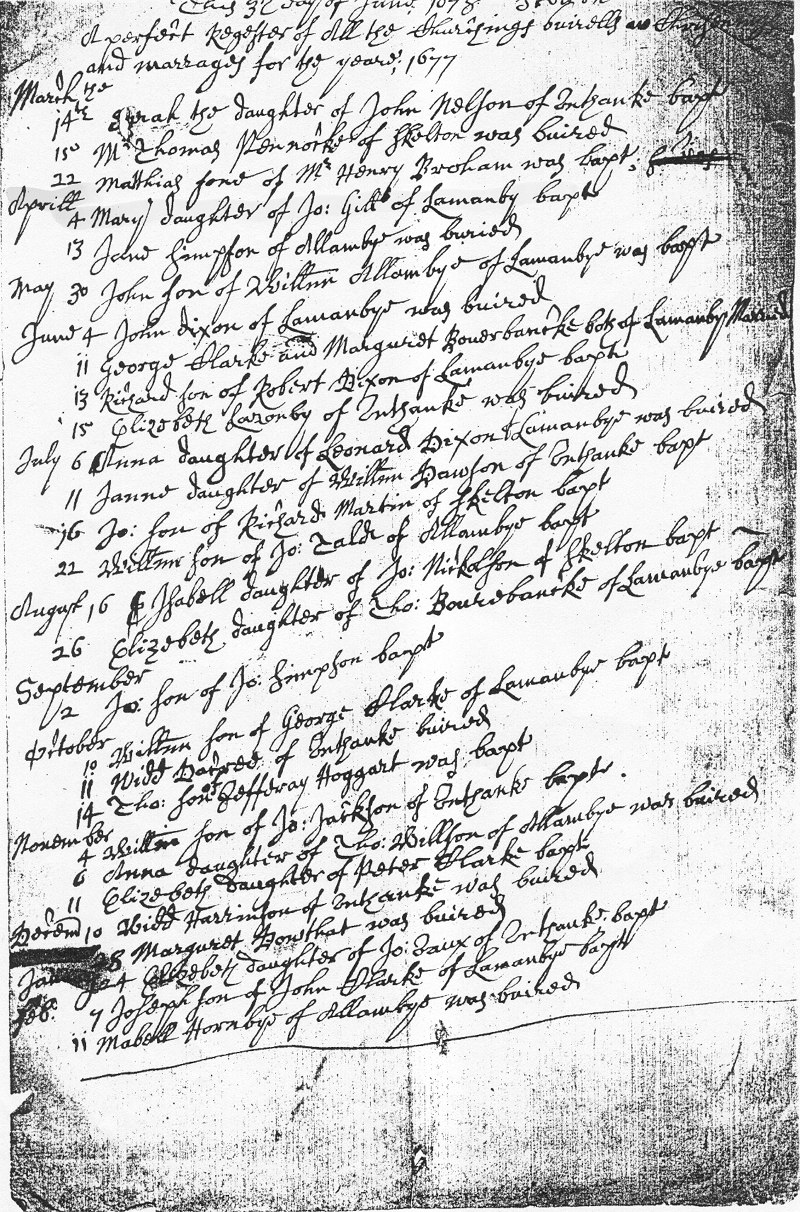 day of June 1678
A perfect Regester of All the Churchings buirells
and marrages for the yeare; 1677
March the
14th Sarah the daughter of John Nelson of Inthanke bapt
15 Mr Thomas Pennocke of Skelton was buired
22 Matthias sone of Mr Henry Broham was bapt;
Aprill
4 Mary daughter of Jo: Gill of Lamanby bapt
13 Jane Simpson of Allambye was buried
May 30 John son of Willm Allambye of Lamanbye was bapt
June 4 John dixon of Lamanbye was buired
11 George Clarke and Margaret Bouerbancke both of Lamanby Married
13 Richard son of Robert Dixon of Lamanbye bapt
15 Elizebeth Lazonby of Inthanke was buired
July 6 Anna daughter of Leonard Dixon Lamanbye was buired
11 Janne daughter of Willm Dawson of Inthanke bapt
16 Jo: son of Richard Martin of Skelton bapt
22 Willm son of Jo: of Allambye bapt
August 16 Isabell daughter of Jo: Nickolson of Skelton bapt
26 Elizebeth daughter of Tho: Bourebancke of Lamanbye bapt
September
2 Jo: son of Jo: Simpson bapt
October
10 Willm son of George Clarke of Lamanbye bapt
11 Widd Dacree of Inthanke buired
14 Tho: son of Jefferay Hoggart was bapt
November
4 Willm son of Jo: Jackson of Inthanke bapt
6 Anna daughter of Tho: Willson of Allambye was buired
11 Elizebeth daughter of Peter Clarke bapt
Decem 10 Widd Harrinson of Inthanke was buired
28 Margaret Dowthat was buired
24 Elizebeth daughter of Jo: of Inthanke bapt
Feb: 7 Joseph son of John Clarke of Lamanbye bapt
11 Mabell Hornbye of Allambye was buired